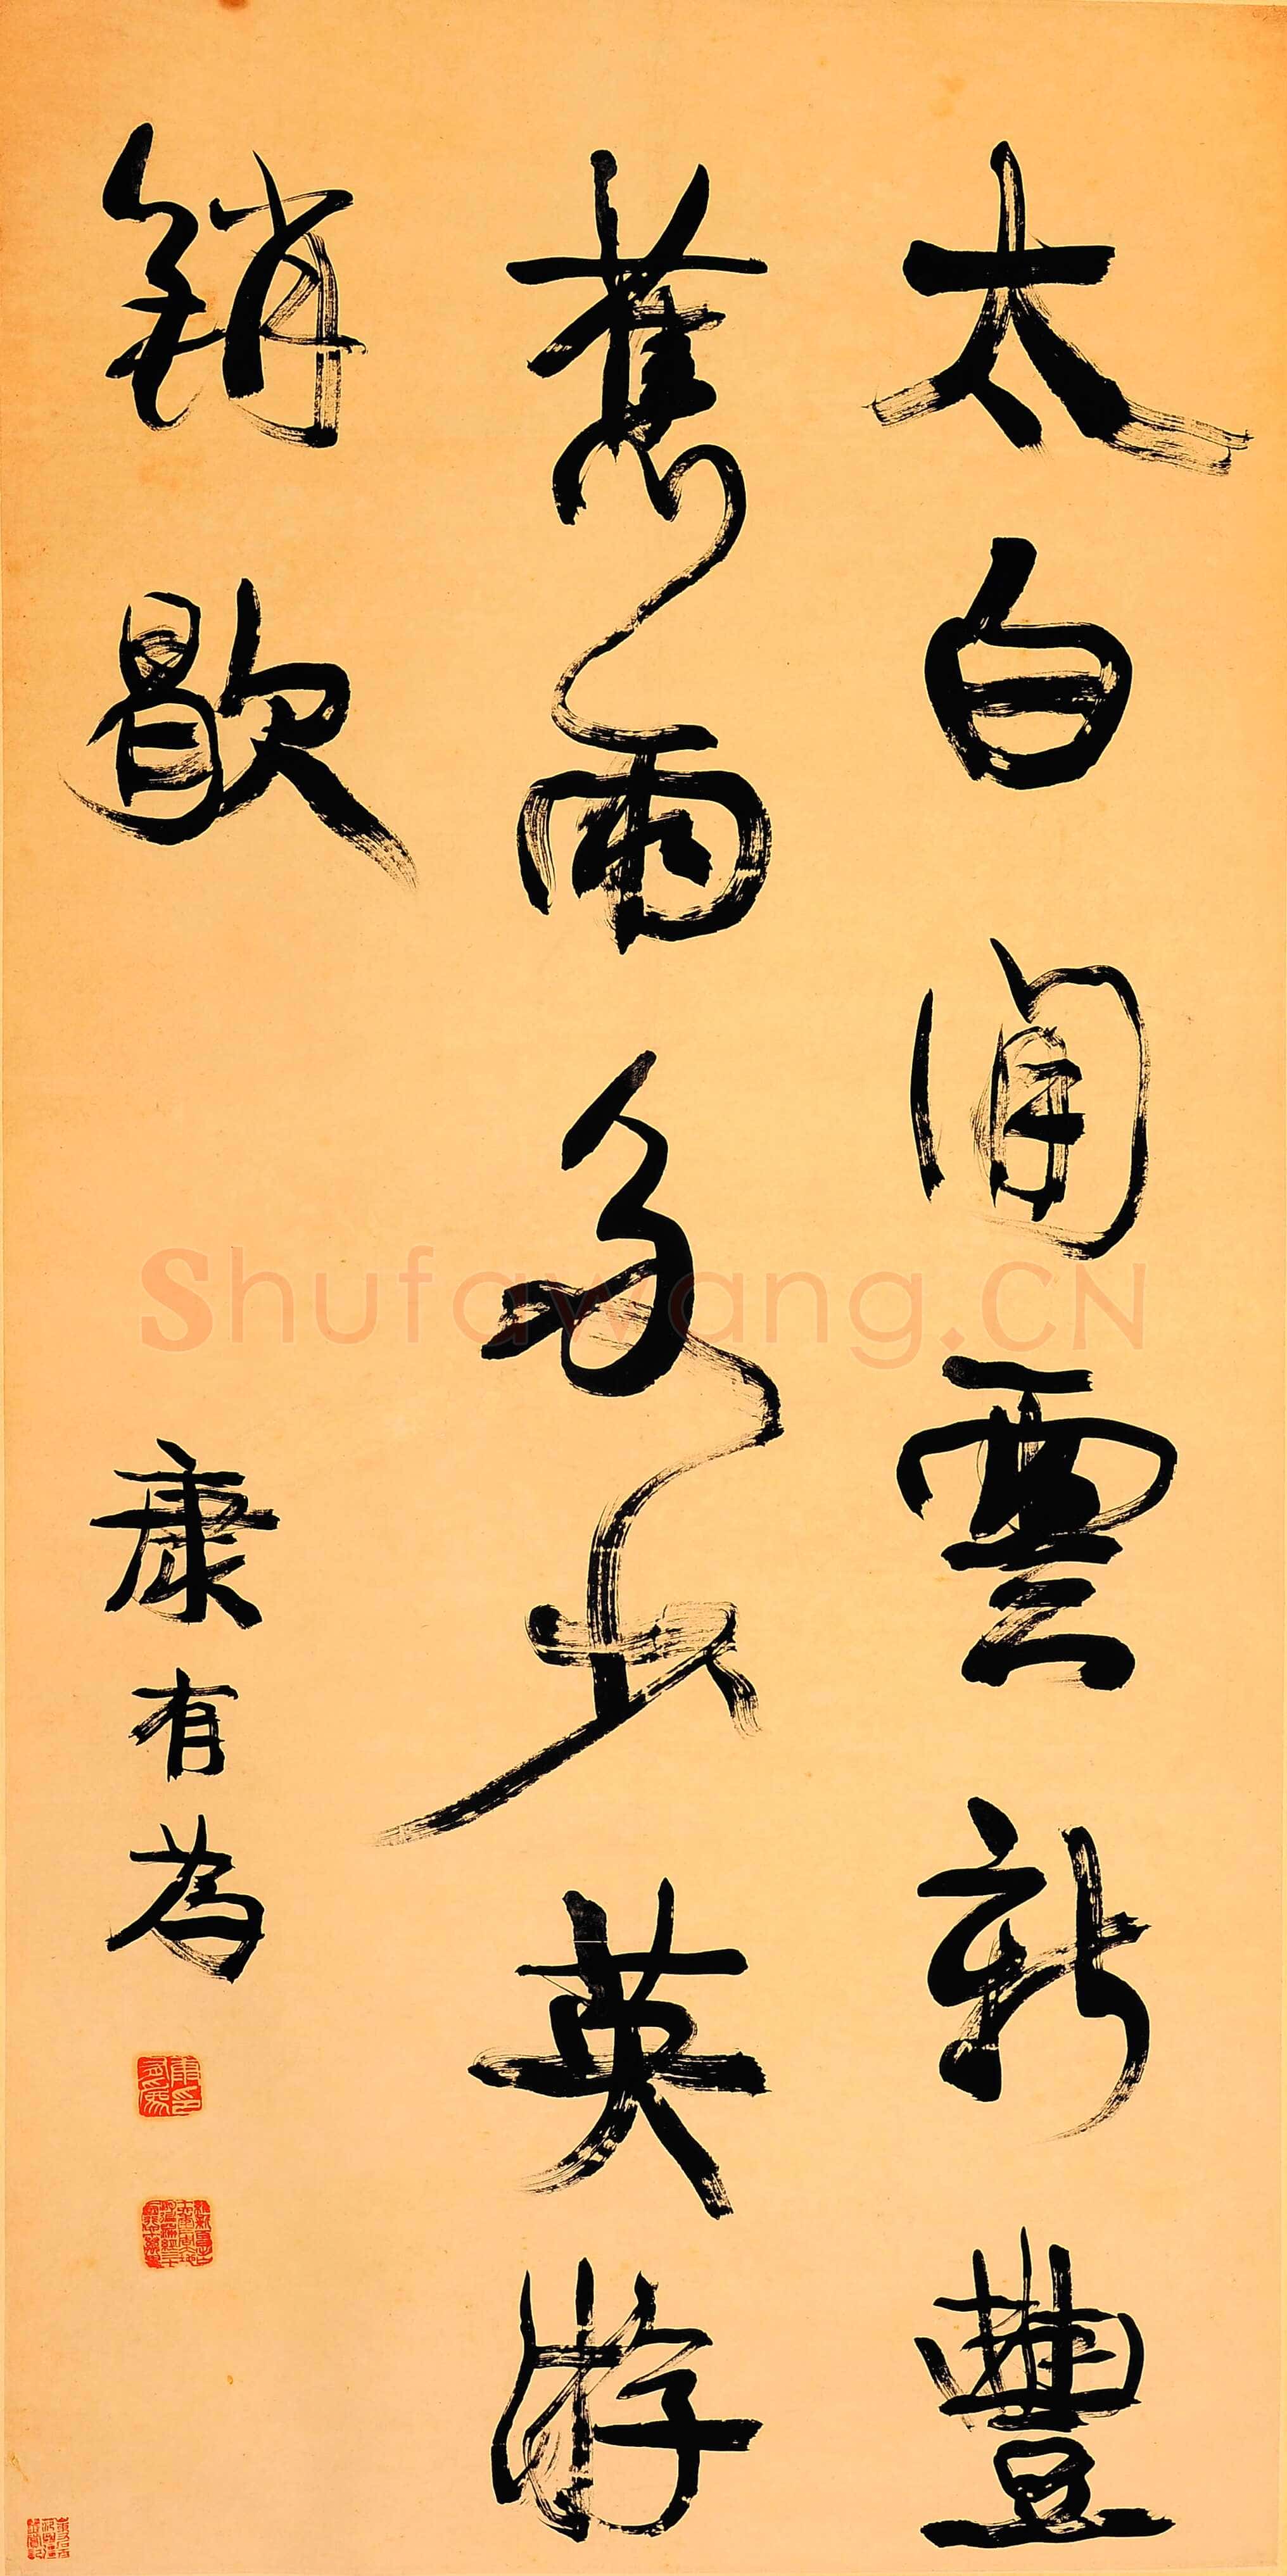 太白通雲新豐
舊雨多少英游
銷歇
康有為
康有為印
Shufawang.CN